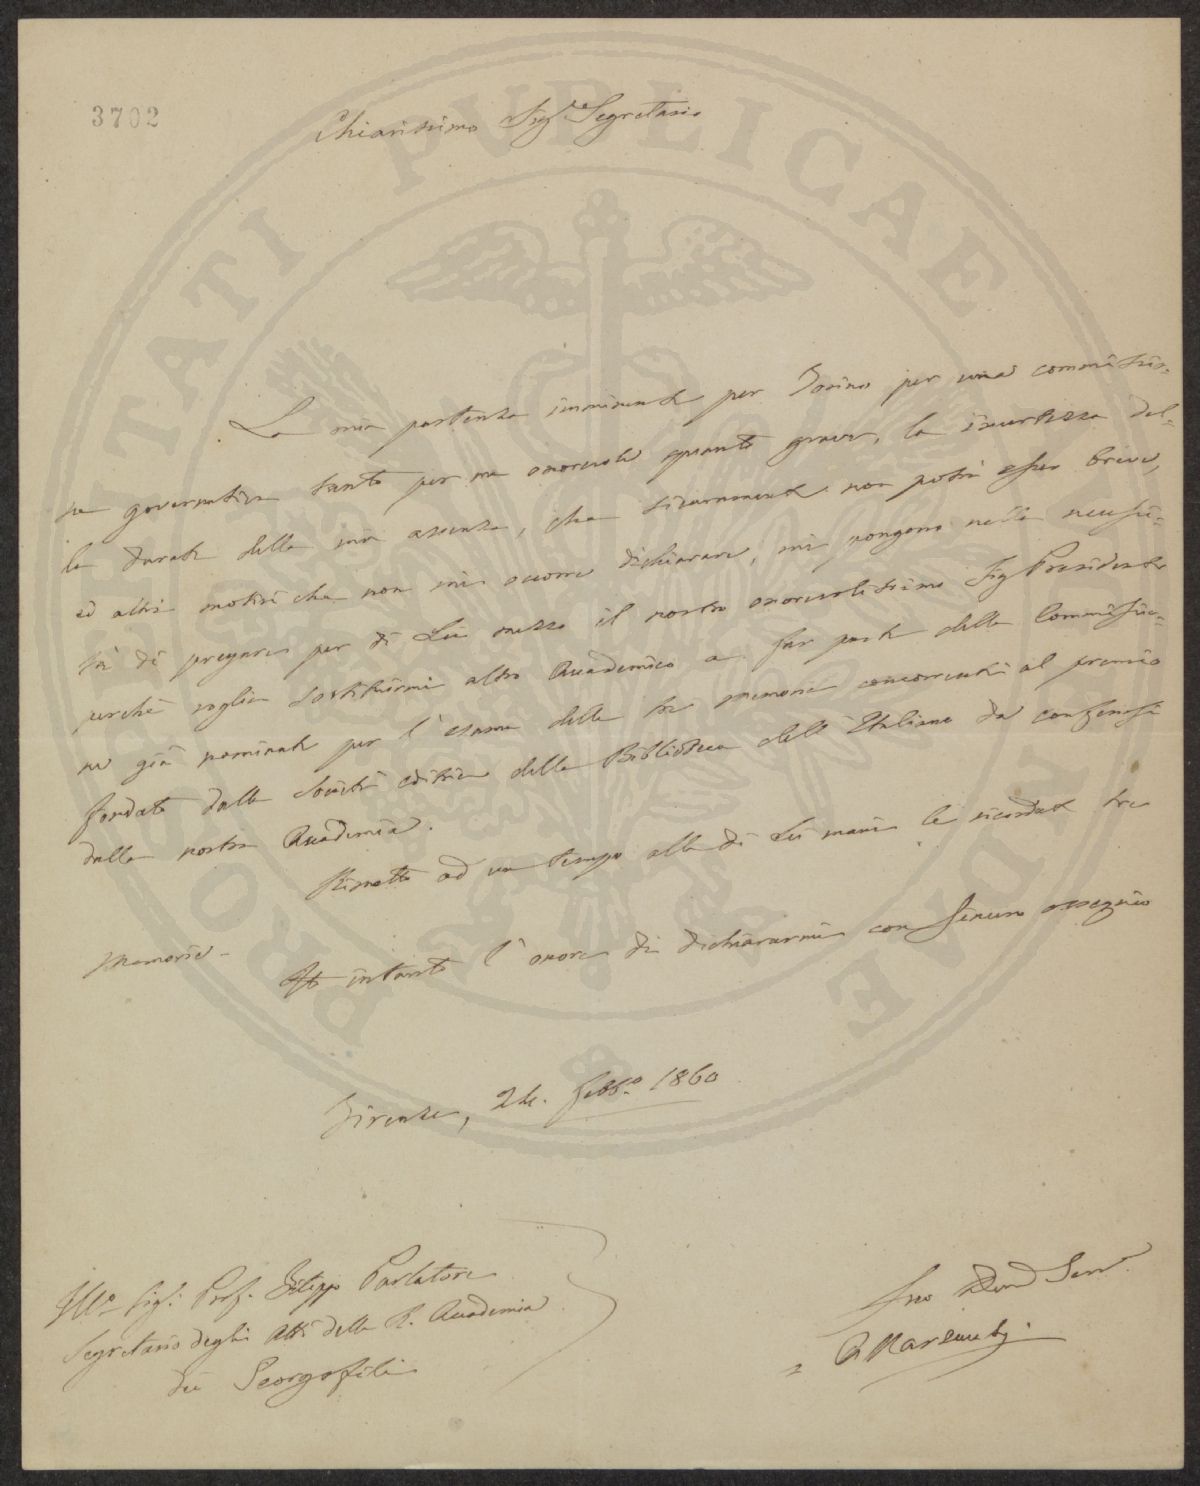 3702
Chiarissimo Sigr Segretario
La mia partenza imminente per Torino per una commissio=
ne governativa tanto per me onorevole quanto grave, la incertezza del=
la durata della mia assenza, che sicuramente non potrà esser breve,
ed altri motivi che non mi occorre dichiarare, mi pongono nella necessi=
tà di pregare per di Lei mezzo il nostro onorevolissimo Sig Presidente
perchè voglia sostituirmi altro Accademico a far parte della Commissio=
ne già nominata per l'esame delle tre memorie concorrenti al premio
fondato dalla Società editrice della Biblioteca dell'Italiano da conferirsi
dalla nostra Accademia.
Rimetto ad un tempo alle di Lei mani le ricordate tre
Memorie.
Ho intanto l'onore di dichiararmi con sincero ossequio
Firenze, 24. Febb.o 1860
Illo Sigr. Prof. Filippo Parlatore
Segretario degli Atti della R. Accademia
dei Georgofili
Suo Dev Serv.
PROSPERITATI PUBLICAE AUGENDAE